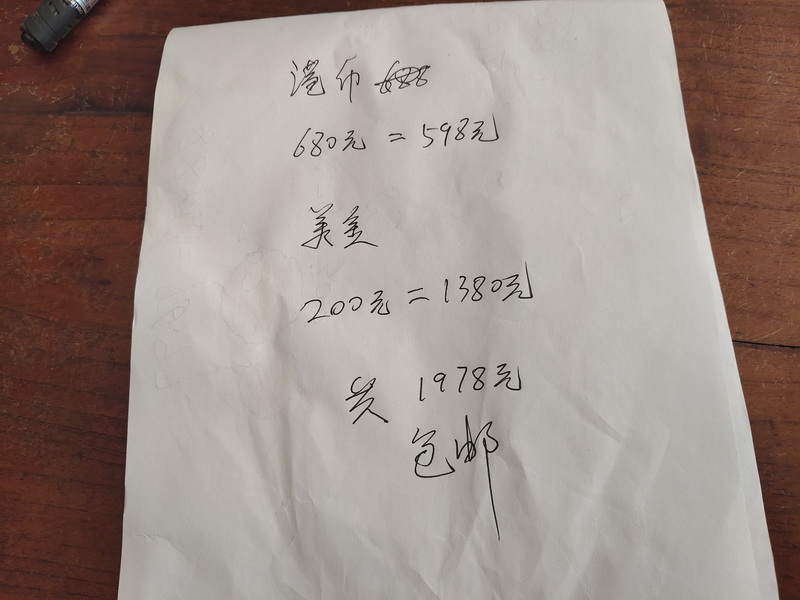 港币
680元=598元
美金
200元=1380元
共 1978元
包邮